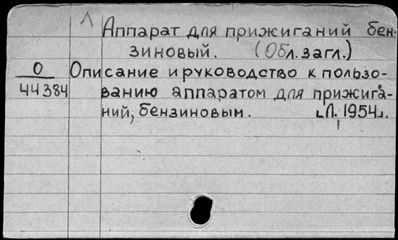 Л
Аппарат для прижиганий бен-
зиновый. (Обл. загл.)
О Описание и руководство к пользо-
44384 ванию аппаратом для прижига-
ний, бензиновым. [Л. 1954].